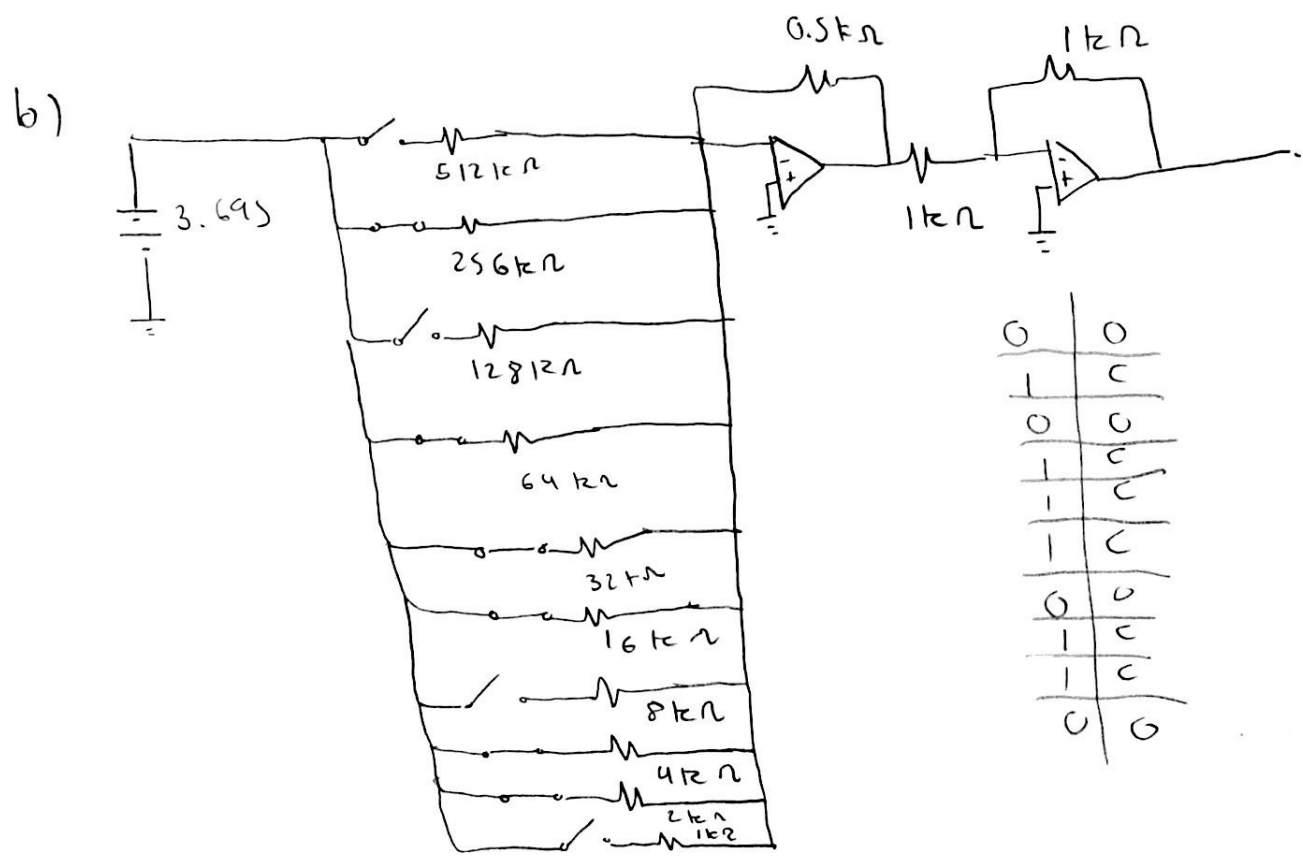 b)
0.5kΩ
1kΩ
512kΩ
3.695
1kΩ
256kΩ
128kΩ
64kΩ
32kΩ
16kΩ
8kΩ
4kΩ
2kΩ
1kΩ
- +
- +
0 0
1 C
0 0
1 C
1 C
1 C
0 0
1 C
1 C
0 0